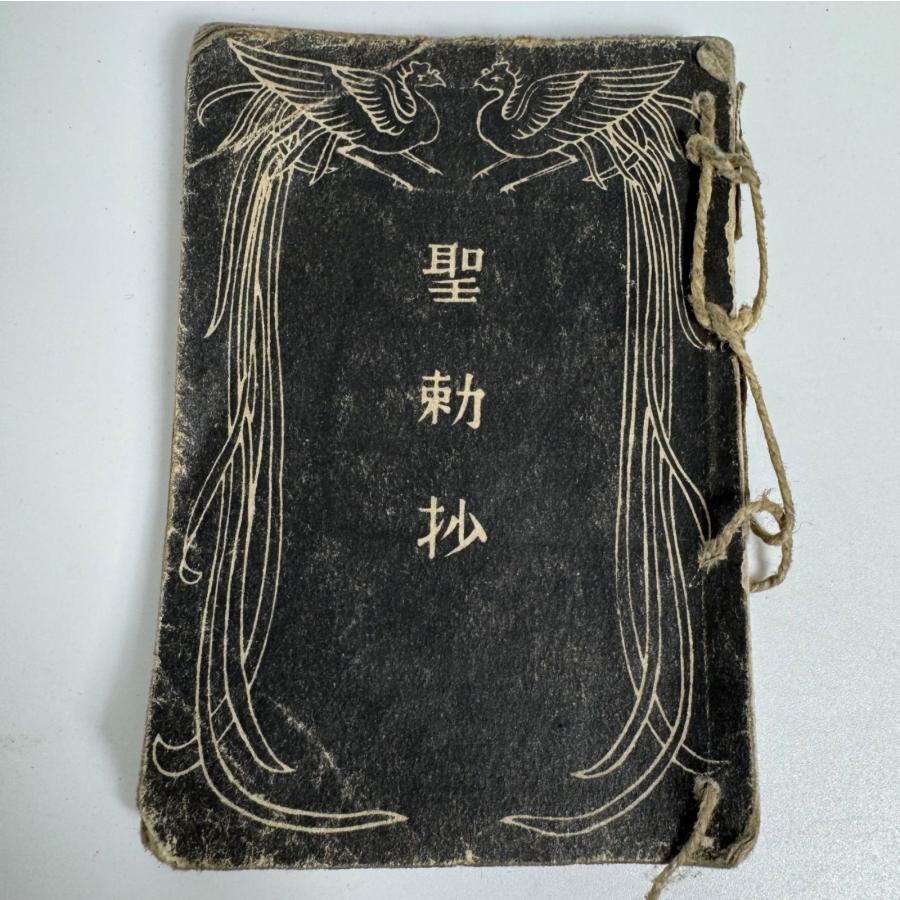 聖勅抄